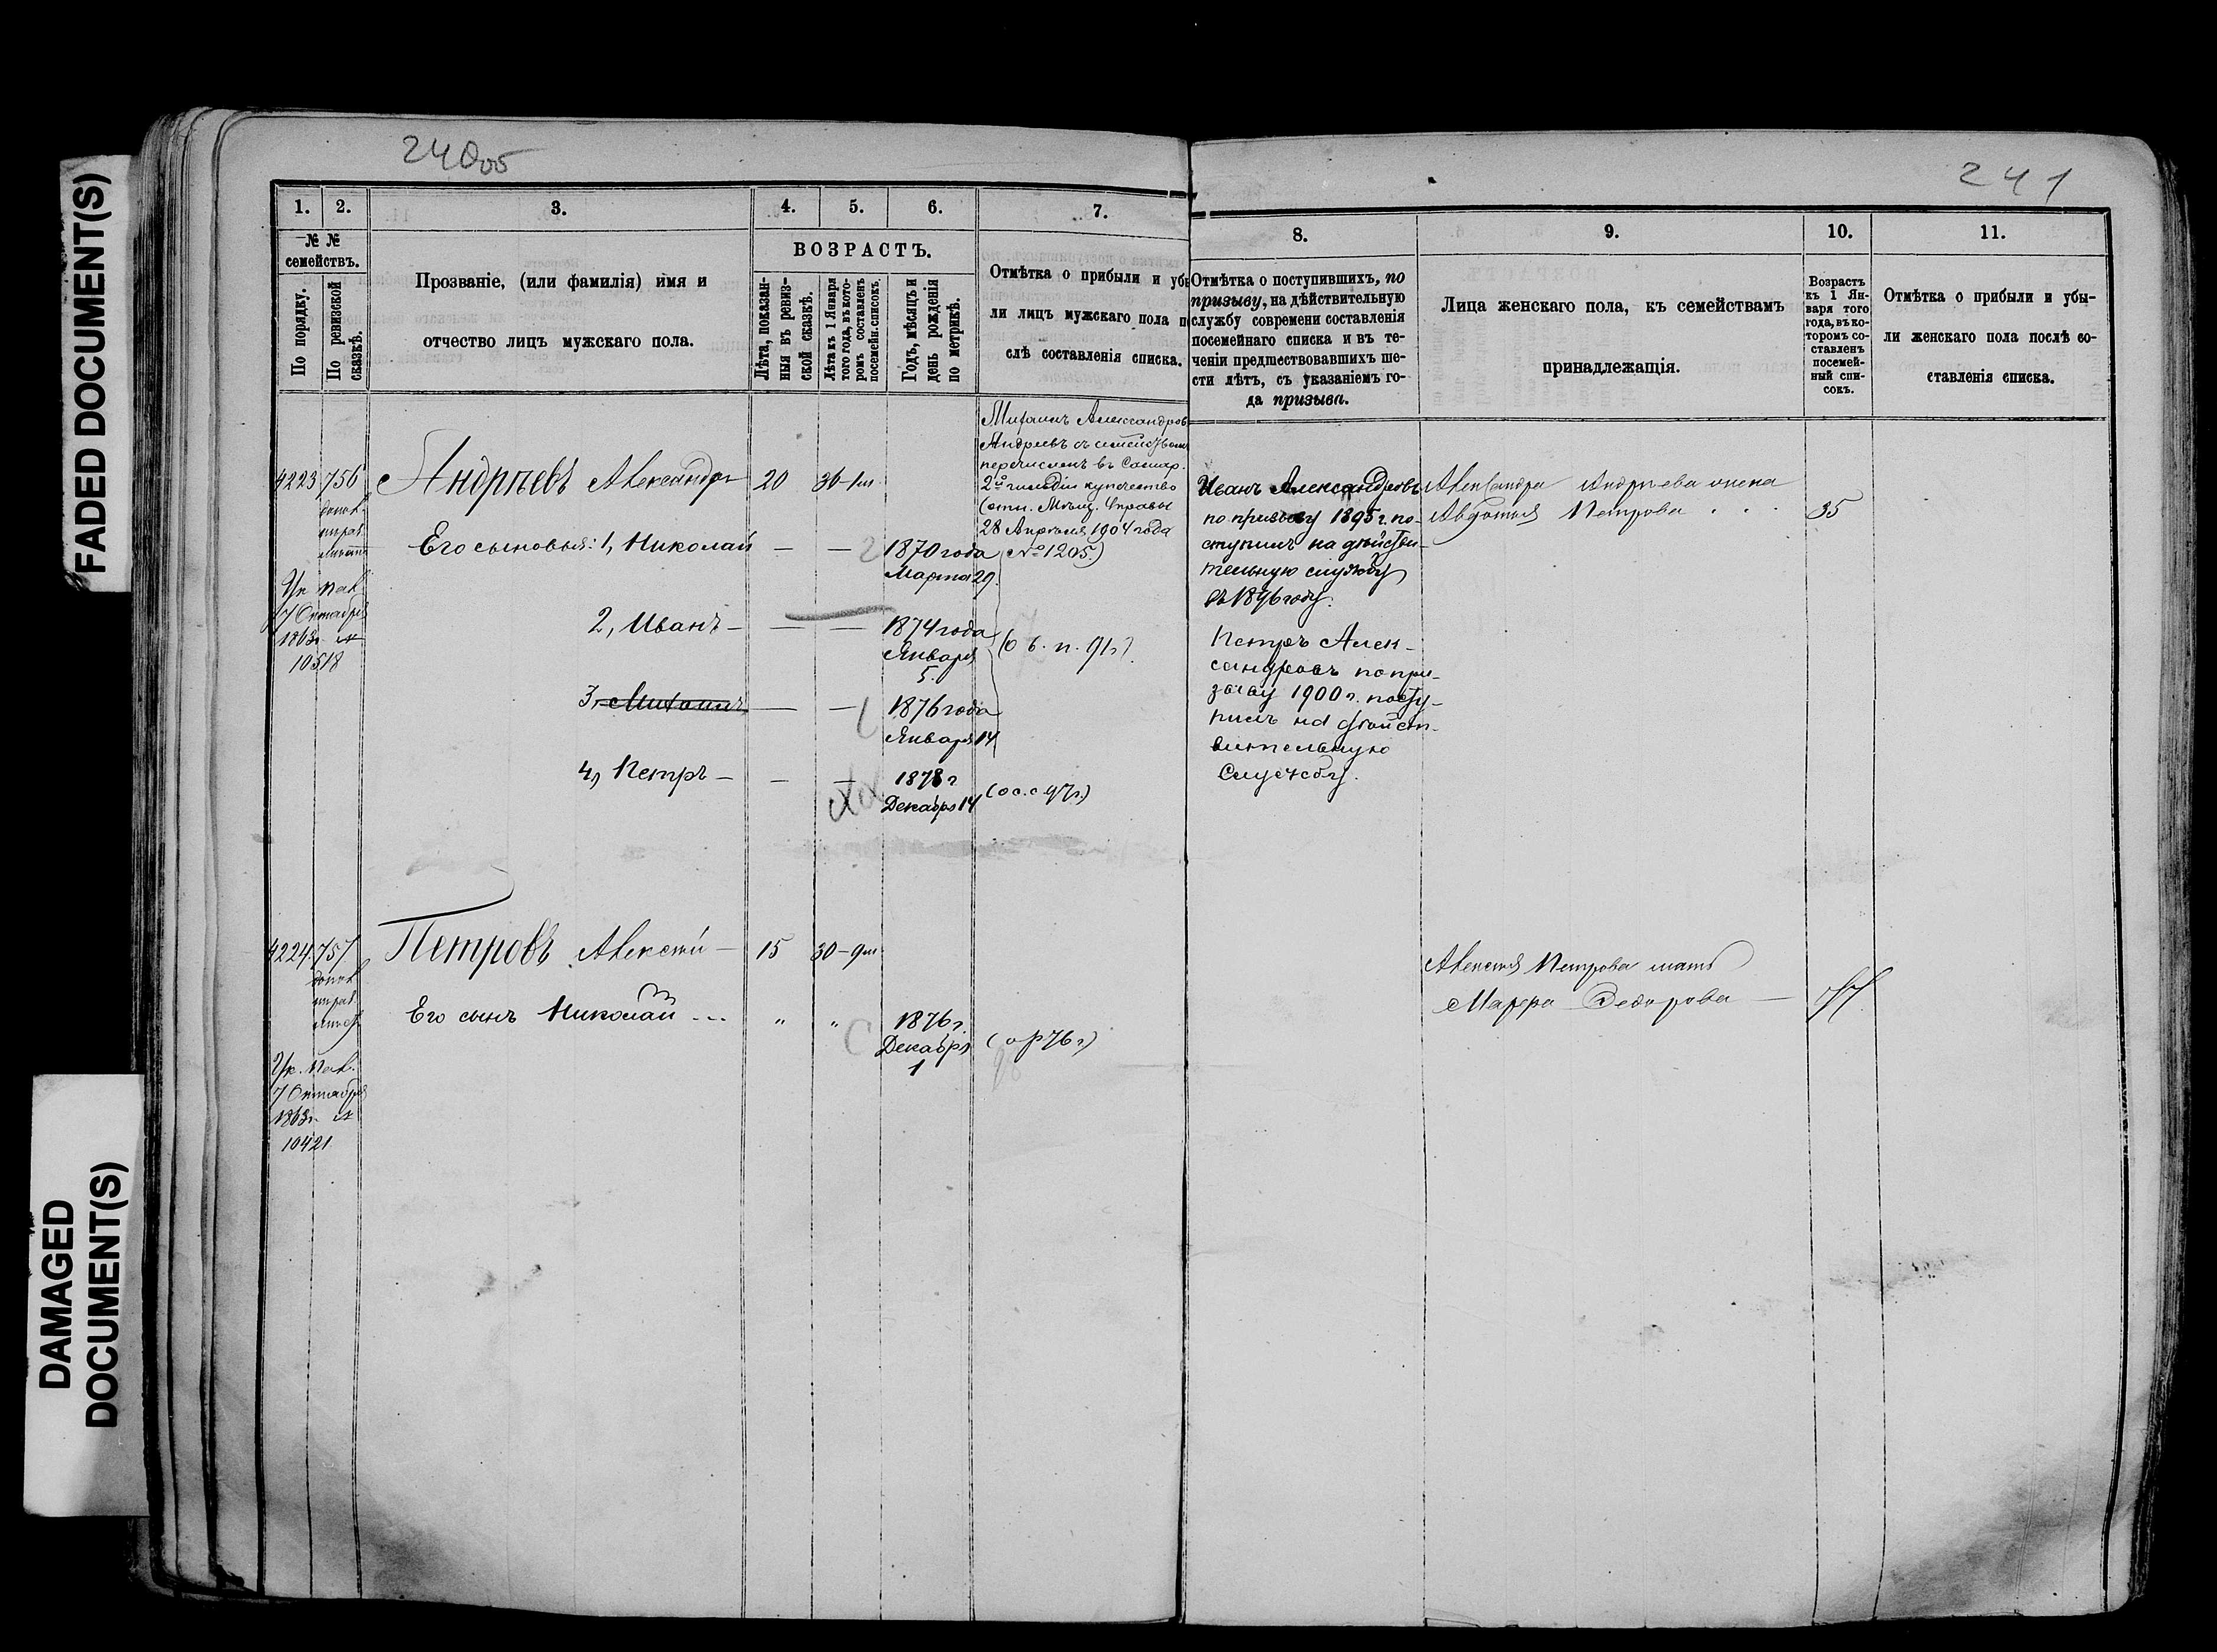 FADED DOCUMENT(S)
DAMAGED
DOCUMENT(S)
240об
1. 2. 3. 4. 5. 6. 7.
№ №
семействъ.
По порядку.
По ревизской
сказкѣ.
Прозваніе, (или фамилія) имя и
отчество лицъ мужскаго пола.
ВОЗРАСТЪ.
Лѣта, показан-
ныя въ ревиз-
ской сказкѣ.
Лѣта къ 1 Января
того года, въ кото-
ромъ составленъ
посемейн. списокъ.
Годъ, мѣсяцъ и
день рожденія
по метрикѣ.
Отмѣтка о прибыли и убы
ли лицъ мужскаго пола по
слѣ составленія списка.
Михаилъ Александровъ
Андреевъ съ семействомъ
перечисленъ въ
2й гильдіи купечество
28 Апрѣля 1904 года
№ 1205.)
4223 756
Андрѣевъ Александръ 20 36-1м
Его сыновья: 1, Николай — —
1870 года
Марта 29.
7 Октября
1863г. №
10518
2, Иванъ — — —
1874 года
Января
5.
3, Михаилъ — —
1876 года
Января 14
4, Петръ — — —
1878 г
Декабря 14
4224 757
Петровъ Алексѣй — 15 30-9м
Его сынъ Николай " "
1876 г.
Декабря
1
7 Октября
1863г. №
10421
241
8. 9. 10. 11.
Отмѣтка о поступившихъ, по
призыву, на дѣйствительную
службу современи составленія
посемейнаго списка и въ те-
ченіи предшествовавшихъ ше-
сти лѣтъ, съ указаніемъ го-
да призыва.
Лица женскаго пола, къ семействамъ
принадлежащія.
Возрастъ
къ 1 Ян-
варя того
года, въ ко-
торомъ со-
ставленъ
посемей-
ный спи-
сокъ.
Отмѣтка о прибыли и убы-
ли женскаго пола послѣ со-
ставленія списка.
Иванъ Александровъ
по призыву 1895 г. по-
ступилъ на дѣйстви-
тельную службу
въ 1896 году.
Петръ Алек-
сандровъ по при-
зыву 1900 г. посту-
пилъ на дѣйст-
вительную
службу.
Александра Андрѣева жена
Авдотья Петрова 35
Алексѣя Петрова мать
Марфа Федорова — 77